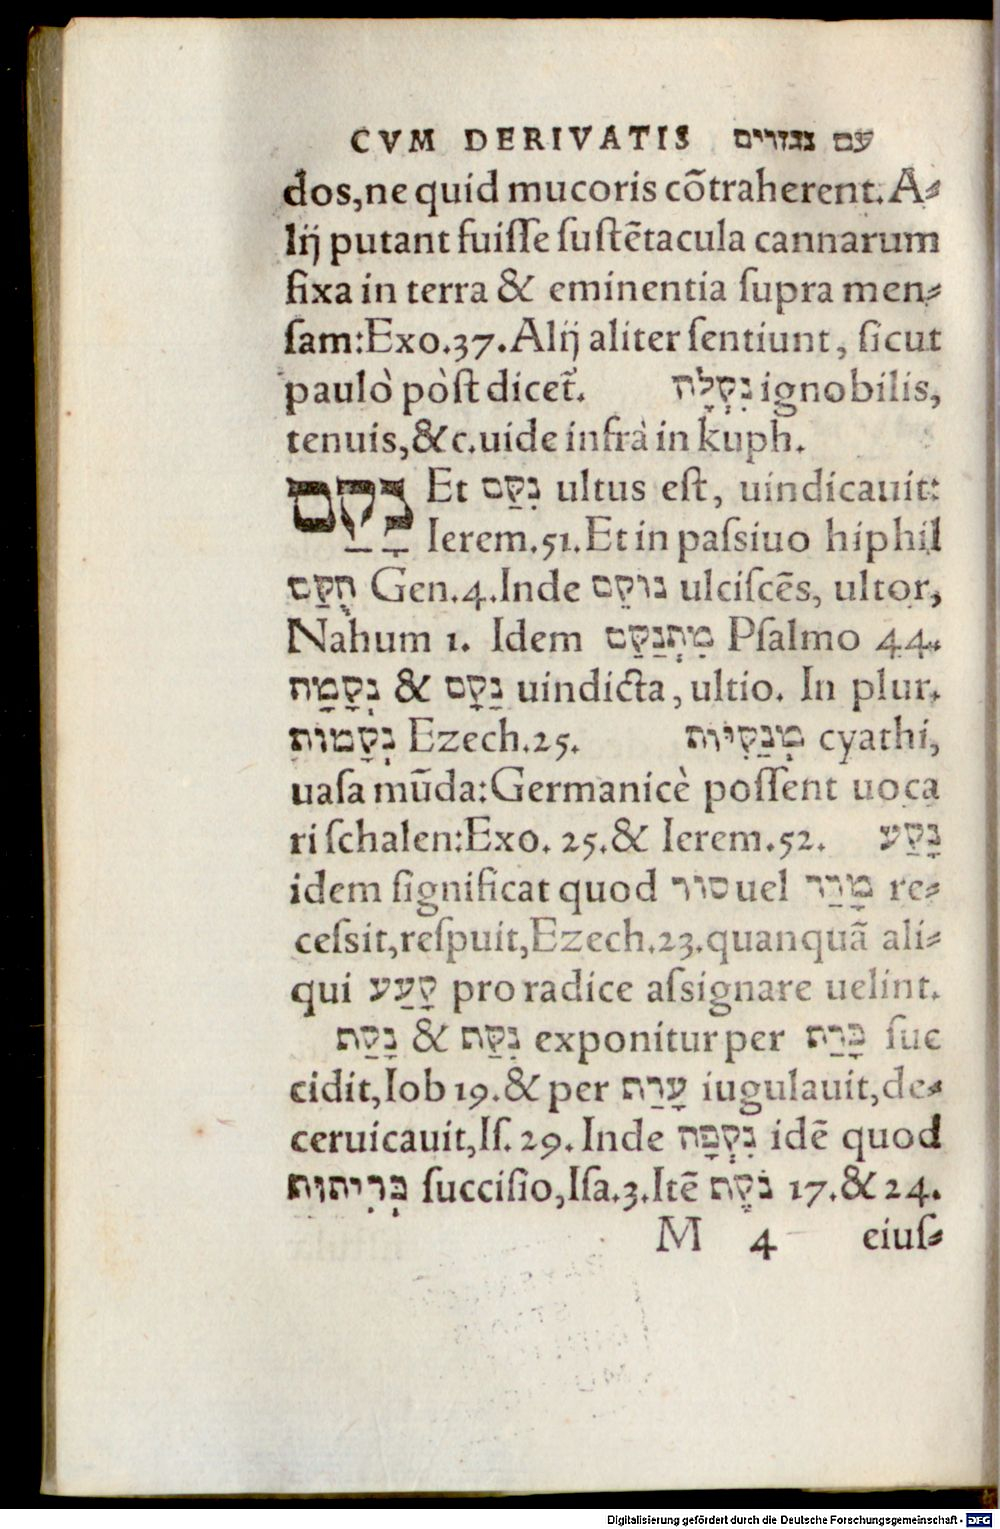 CVM DERIVATIS עם נגזרים
dos, ne quid mucoris cõtraherent. A⸗
lij putant fuiſſe ſuſtẽtacula cannarum
fixa in terra & eminentia ſupra men⸗
ſam: Exo. 37. Alij aliter ſentiunt, ſicut
paulò pòſt dicet̃. נִקְלָה ignobilis,
tenuis, &c. uide infrà in kuph.
נָקַם Et נִקַּם ultus eſt, uindicauit:
Ierem. 51. Et in paſsiuo hiphil
הֻקַּם Gen. 4. Inde נוקֵם ulciſcẽs, ultor,
Nahum 1. Idem מִתְנַקֵּם Pſalmo 44.
נְקָמָה & נָקָם uindicta, ultio. In plur.
נְקָמוֹת Ezech. 25. מְנַקִּיּוֹת cyathi,
uaſa mũda: Germanicè poſſent uoca
ri ſchalen: Exo. 25. & Ierem. 52. נָקַע
idem ſignificat quod סור uel מָרַר re⸗
ceſsit, reſpuit, Ezech. 23. quanquã ali⸗
qui קָעַע pro radice aſsignare uelint.
נָקַף & נִקַּף exponitur per כָּרַת ſuc
cidit, Iob 19. & per עָרַף iugulauit, de⸗
ceruicauit, Iſ. 29. Inde נִקְפָּה idẽ quod
כְּרִיתוּת ſucciſio, Iſa. 3. Itẽ נֹקֶף 17. & 24.
M 4 eiuſ⸗
Digitalisierung gefördert durch die Deutsche Forschungsgemeinschaft - DFG